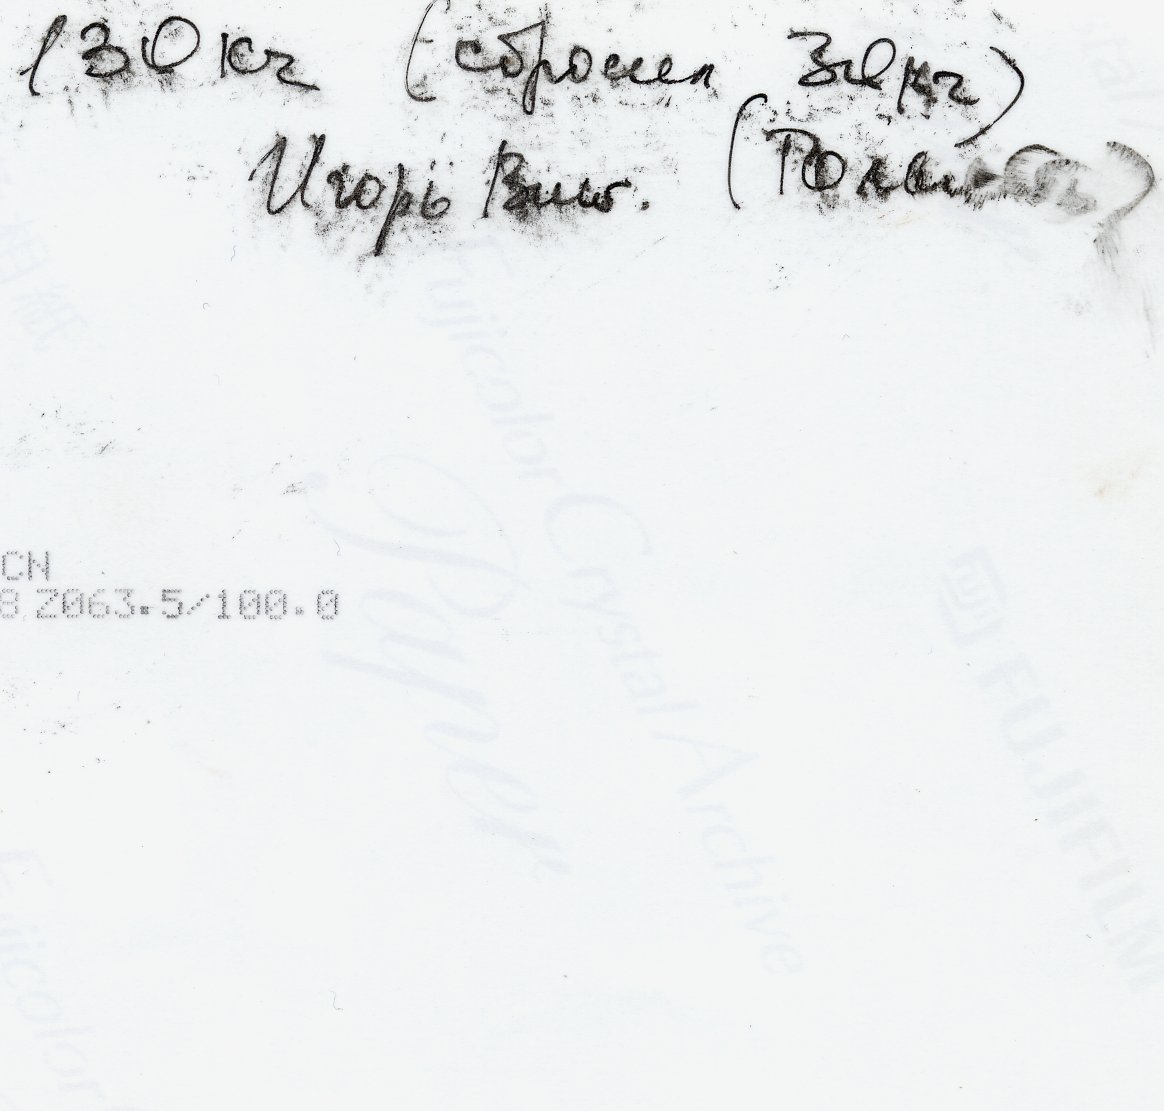 130 кг (сбросил 30 кг)
Игорь
CN
8 Z063.5/100.0
Fujicolor Crystal Archive
Paper
FUJIFILM
Fujicolor